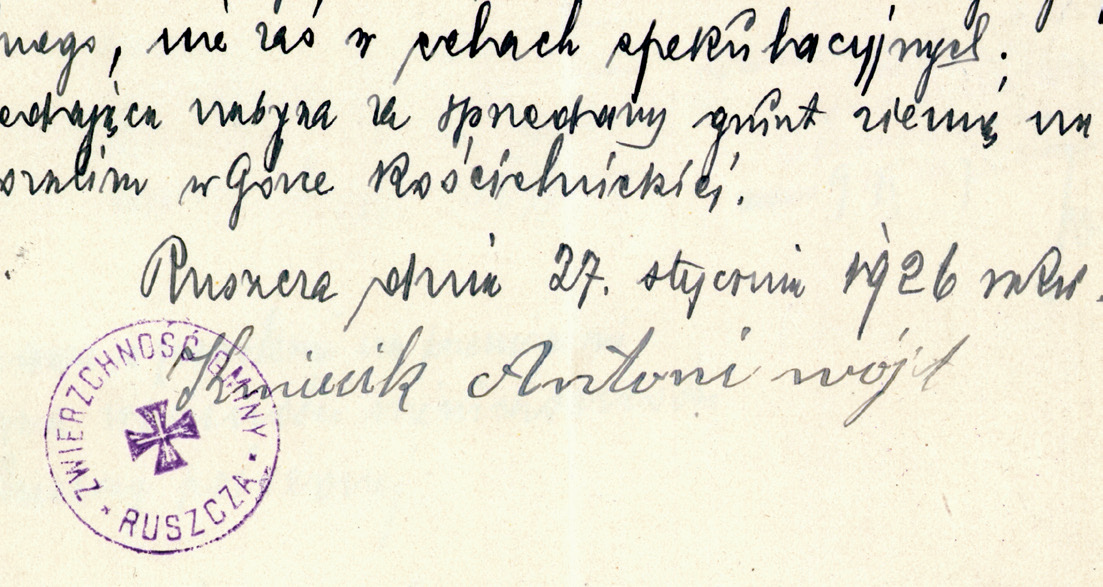 nego, nie zaś w celach spekulacyjnych.
edająca nabywa za sprzedany grunt ziemię na
w Górze Kościelnickiej.
Ruszcza dnia 27. stycznia 1926 roku.
Kmiecik Antoni wójt
ZWIERZCHNOŚĆ GMINY
* RUSZCZA *